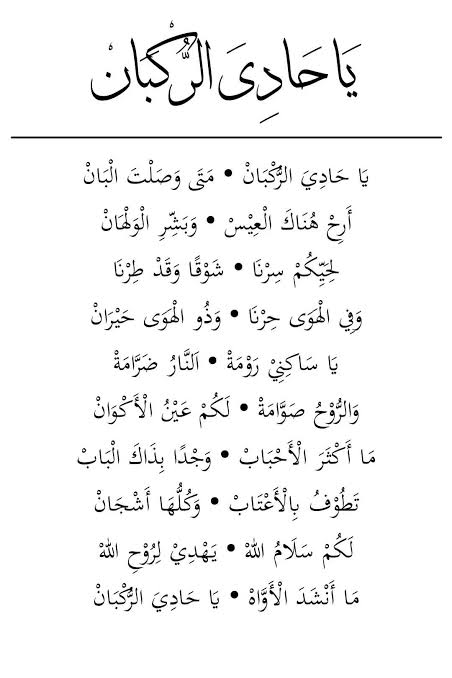 يَا حَادِىَ الرُّكْبَانْ
يَا حَادِيَ الرُّكْبَانْ • مَتَى وَصَلْتَ الْبَانْ
أَرِحْ هُنَاكَ الْعِيْسْ • وَبَشِّرِ الْوَلْهَانْ
لِحَيِّكُمْ سِرْنَا • شَوْقًا وَقَدْ طِرْنَا
وَفِي الْهَوَى حِرْنَا • وَذُو الْهَوَى حَيْرَانْ
يَا سَاكِنِيْ رَوْمَةْ • اَلنَّارُ ضَرَّامَةْ
وَالرُّوْحُ صَوَّامَةْ • لَكُمْ عَيْنُ الْأَكْوَانْ
مَا أَكْثَرَ الْأَحْبَابْ • وَجْدًا بِذَاكَ الْبَابْ
تَطُوْفُ بِالْأَعْتَابْ • وَكُلُّهَا أَشْجَانْ
لَكُمْ سَلَامُ اللهْ • يَهْدِيْ لِرُوْحِ اللهْ
مَا أَنْشَدَ الْأَوَّاهْ • يَا حَادِيَ الرُّكْبَانْ